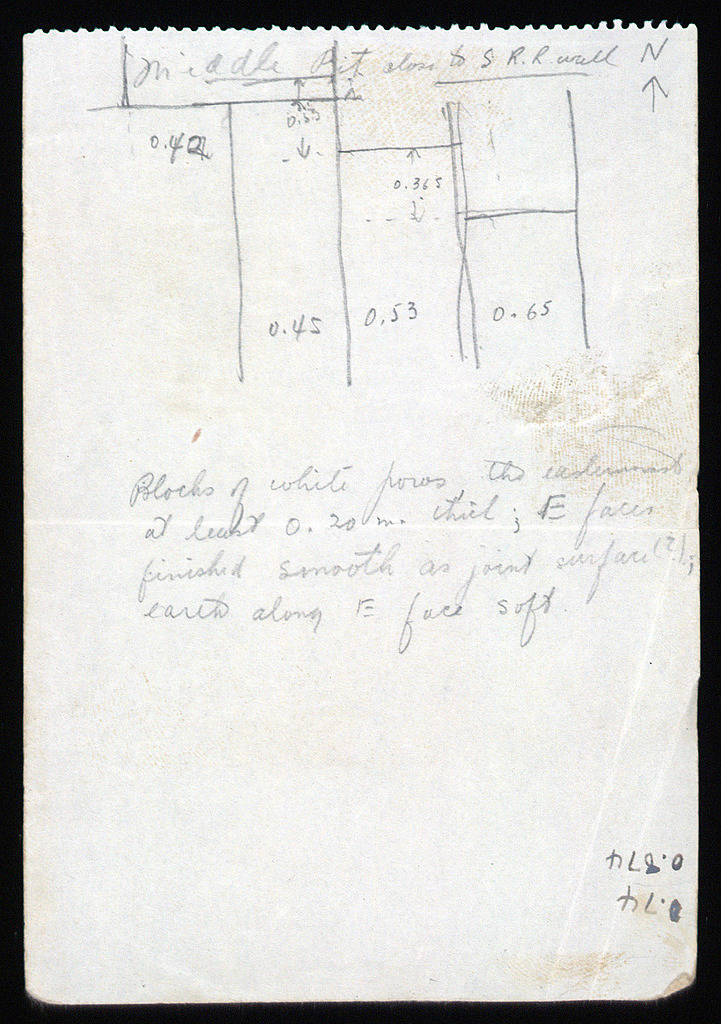 Middle Pit close to S R.R wall N
0.42
0.53
0.365
0.45 0.53 0.65
Blocks of white poros, the easternmost
at least 0.20 m. thick; E faces
finished smooth as joint surface (?);
earth along E face soft.
0.874
0.74